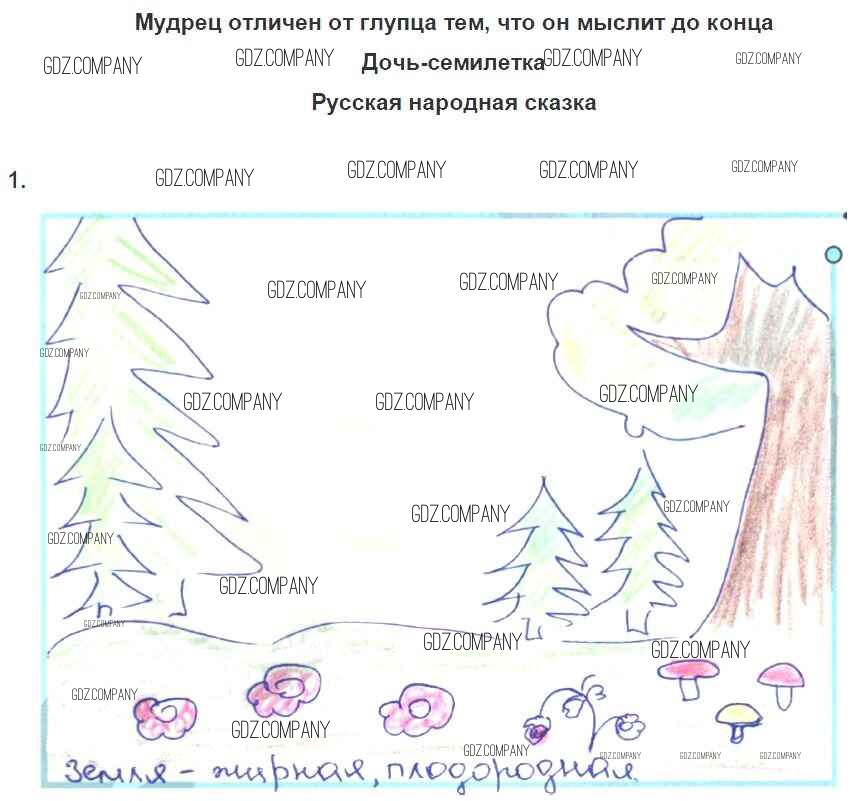 Мудрец отличен от глупца тем, что он мыслит до конца
GDZ.COMPANY GDZ.COMPANY Дочь-семилетка GDZ.COMPANY GDZ.COMPANY
Русская народная сказка
1. GDZ.COMPANY GDZ.COMPANY GDZ.COMPANY GDZ.COMPANY
GDZ.COMPANY GDZ.COMPANY GDZ.COMPANY GDZ.COMPANY
GDZ.COMPANY
GDZ.COMPANY GDZ.COMPANY GDZ.COMPANY
GDZ.COMPANY
GDZ.COMPANY GDZ.COMPANY
GDZ.COMPANY
GDZ.COMPANY
GDZ.COMPANY GDZ.COMPANY GDZ.COMPANY
GDZ.COMPANY
GDZ.COMPANY
GDZ.COMPANY GDZ.COMPANY GDZ.COMPANY GDZ.COMPANY
земля - жирная, плодородная